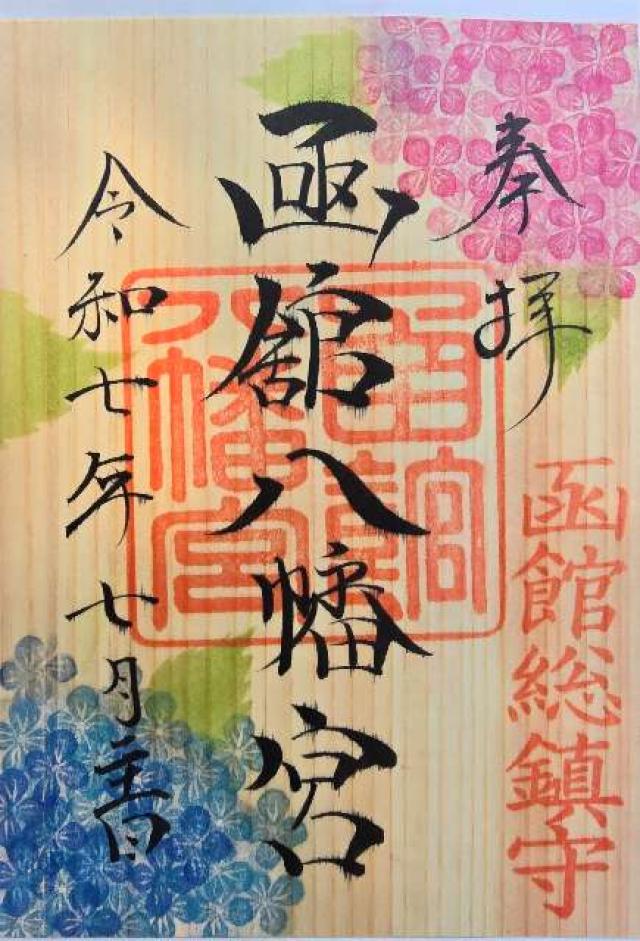 奉拝
函館総鎮守
函館八幡宮
函館
八幡宮
令和七年七月